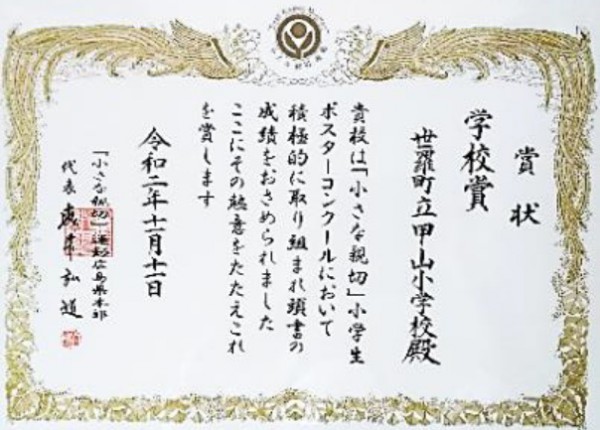 賞状
学校賞
世羅町立甲山小学校殿
貴校は「小さな親切」小学生
ポスターコンクールにおいて
積極的に取り組まれ頭書の
成績をおさめられました
ここにその熱意をたたえこれ
を賞します
令和二年十一月十一日
「小さな親切」運動広島県本部
代表 弘道